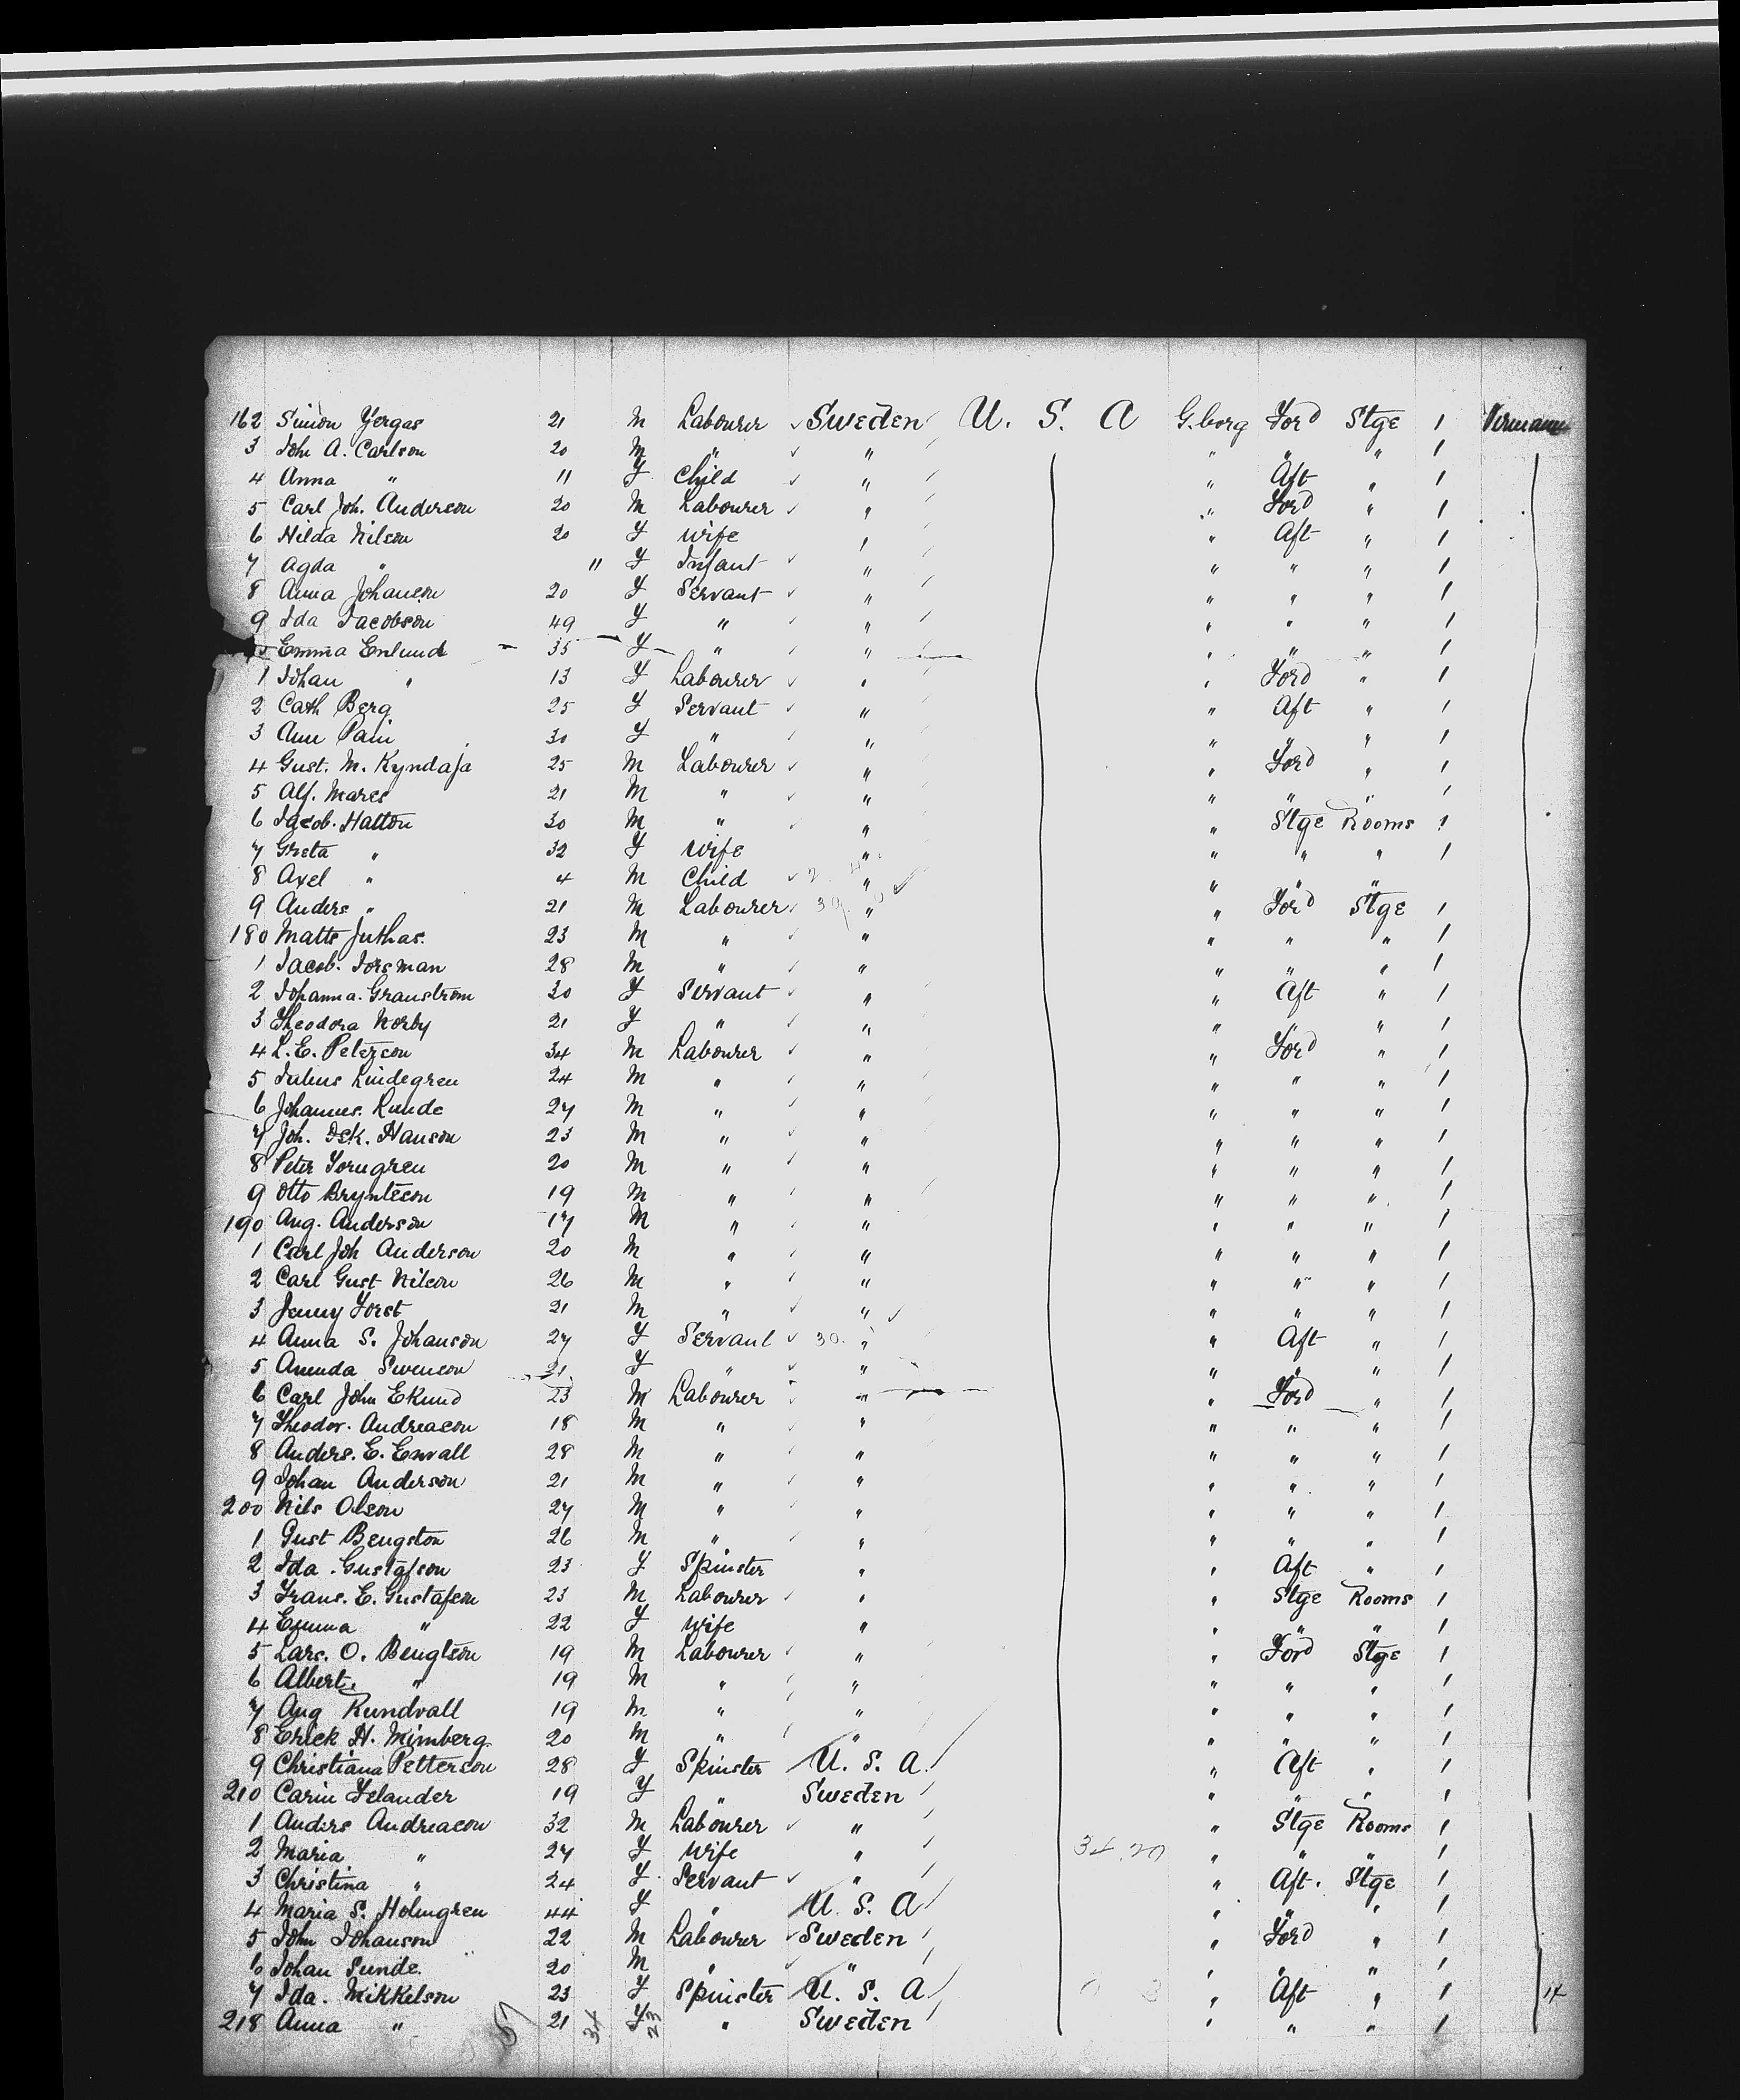 162 Simon Yergas 21 M Labourer ✓ Sweden U. S. A G.borg Ford Stge 1
3 John A. Carlson 20 M " ✓ " " " " 1
4 Anna " 11 F Child ✓ " " Aft " 1
5 Carl Joh. Anderson 20 M Labourer ✓ " " Ford " 1
6 Hilda Nilson 20 F Wife " " Aft " 1
7 Agda " " F Infant ✓ " " " " 1
8 Anna Johanson 20 F Servant ✓ " " " " 1
9 Ida Jacobson 49 F " ✓ " " " " 1
Emma Enlund 35 F " ✓ " " " " 1
1 Johan " 13 F Labourer ✓ " " Ford " 1
2 Cath Berg 25 F Servant ✓ " " Aft " 1
3 Ann Pain 30 F " ✓ " " " " 1
4 Gust. M. Kyndaja 25 M Labourer ✓ " " Ford " 1
5 Alf. Mares 21 M " ✓ " " " " 1
6 Jacob. Hatton 30 M " ✓ " " Stge Rooms 1
7 Greta " 32 F Wife " " " " 1
8 Axel " 4 M Child ✓ " " " "
9 Anders " 21 M Labourer ✓ " " Ford Stge 1
180 Matts Juthas. 23 M " ✓ " " " " 1
1 Jacob. Forsman 28 M " ✓ " " " " 1
2 Johanna. Granstrom 30 F Servant ✓ " " Aft " 1
3 Theodora Norby 21 F " ✓ " " " " 1
4 L. E. Peterson 34 M Labourer ✓ " " Ford " 1
5 Julius Lindegren 24 M " ✓ " " " " 1
6 Johannes. Runde 27 M " ✓ " " " " 1
7 Joh. Osk. Hanson 23 M " ✓ " " " " 1
8 Peter Forngren 20 M " ✓ " " " " 1
9 Otto Brynteson 19 M " ✓ " " " " 1
190 Aug. Anderson 17 M " ✓ " " " " 1
1 Carl Joh Anderson 20 M " ✓ " " " " 1
2 Carl Gust Nilson 26 M " ✓ " " " " 1
3 Jenny Forst 21 M " ✓ " ✓ " " " 1
4 Anna S. Johanson 27 F Servant ✓ 30. " " Aft " 1
5 Amanda Swenson 21 F " ✓ " " " " 1
6 Carl John Eklund 23 M Labourer ✓ " " Ford " 1
7 Theodor. Andreason 18 M " ✓ " " " " 1
8 Anders. E. Envall 28 M " ✓ " " " " 1
9 Johan Anderson 21 M " ✓ " " " " 1
200 Nils Olson 27 M " ✓ " " " " 1
1 Gust Bengston 26 M " ✓ " " " " 1
2 Ida. Gustafson 23 F Spinster " " Aft " 1
3 Frans. E. Gustafson 23 M Labourer ✓ " " Stge Rooms 1
4 Emma " 22 F Wife " " " " 1
5 Lars. O. Bengtson 19 M Labourer ✓ " " Ford Stge 1
6 Albert. " 19 M " ✓ " " " " 1
7 Aug Rundvall 19 M " ✓ " " " " 1
8 Erick H. Mimberg. 20 M " " " " " 1
9 Christiana Petterson 28 F Spinster U. S. A. " Aft " 1
210 Carin Felander 19 F " Sweden " " " 1
1 Anders Andreason 32 M Labourer ✓ " " Stge Rooms 1
2 Maria " 27 F Wife " " " " 1
3 Christina " 24 F Servant ✓ " " Aft. Stge 1
4 Maria S. Holmgren 44 F " U. S. A " " " 1
5 John Johanson 22 M Labourer ✓ Sweden " Ford " 1
6 Johan Sunde. 20 M " ✓ " " " " 1
7 Ida. Mikkelson 23 F Spinster U. S. A " Aft " 1
218 Anna " 21 F " Sweden " " " 1